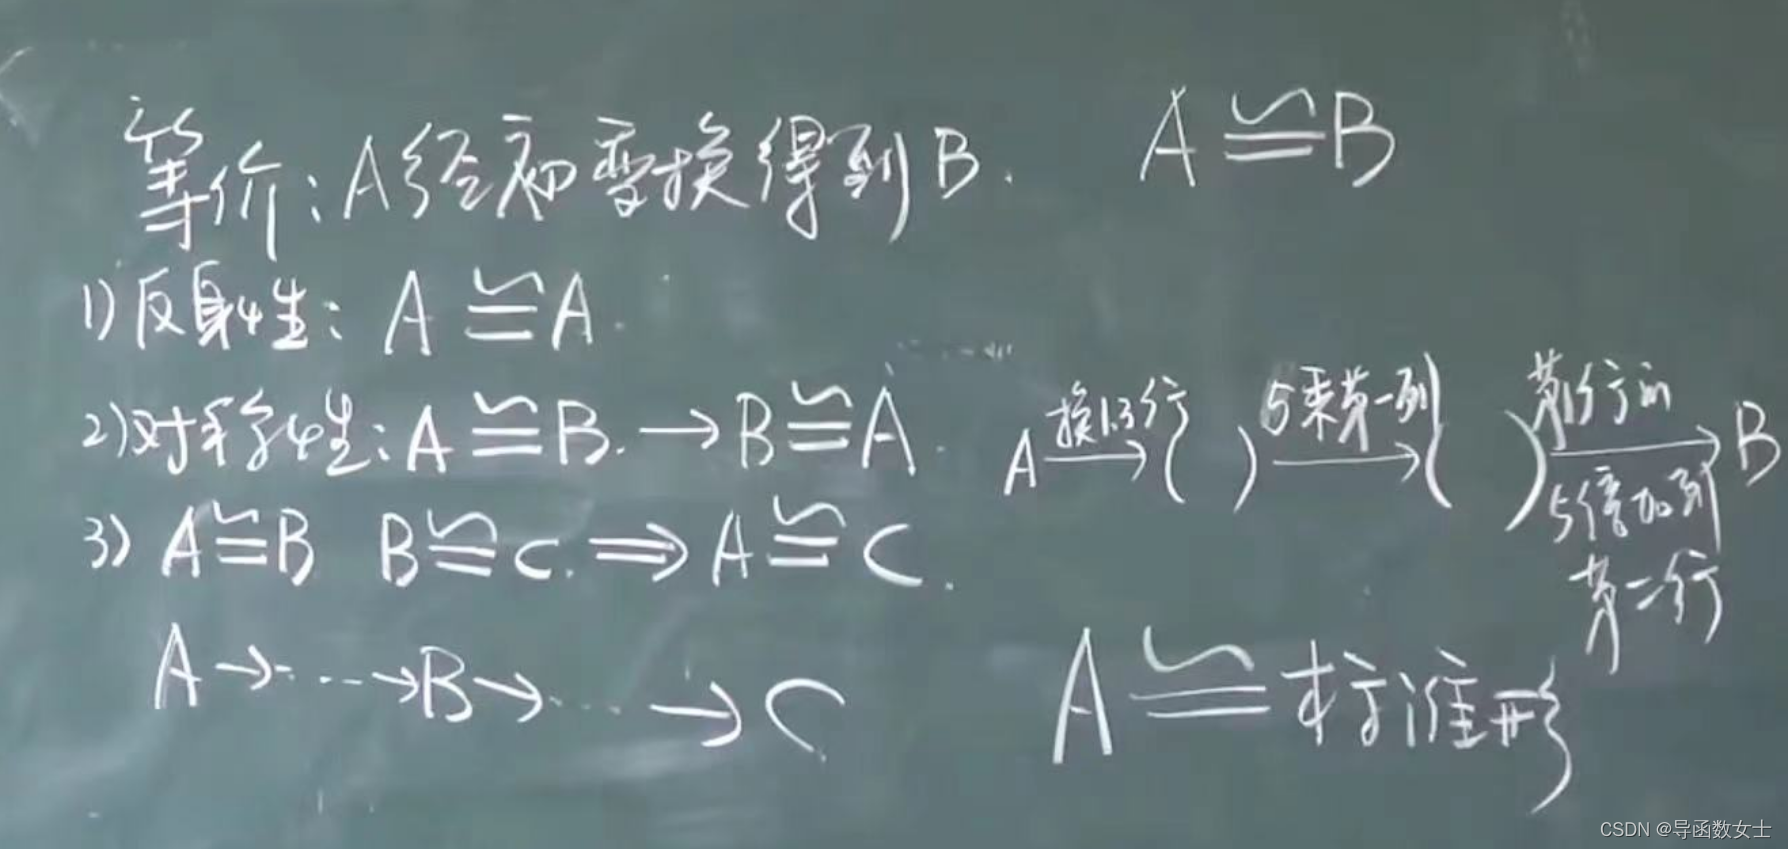 等价:A经初变换得到B. A≌B
1)反身性: A≌A.
2)对称性: A≌B. → B≌A.
3) A≌B B≌C. ⇒ A≌C.
A→···→B→···→C
A 换1.3行→ ( ) 5乘第一列→ ( ) 第1行的5倍加到第二行→ B
A≌标准形
CSDN @导函数女士